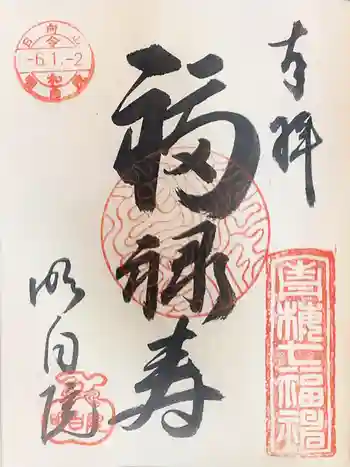 奉拝
福禄寿
明白院
青梅七福神
令
-6.1.-2
和